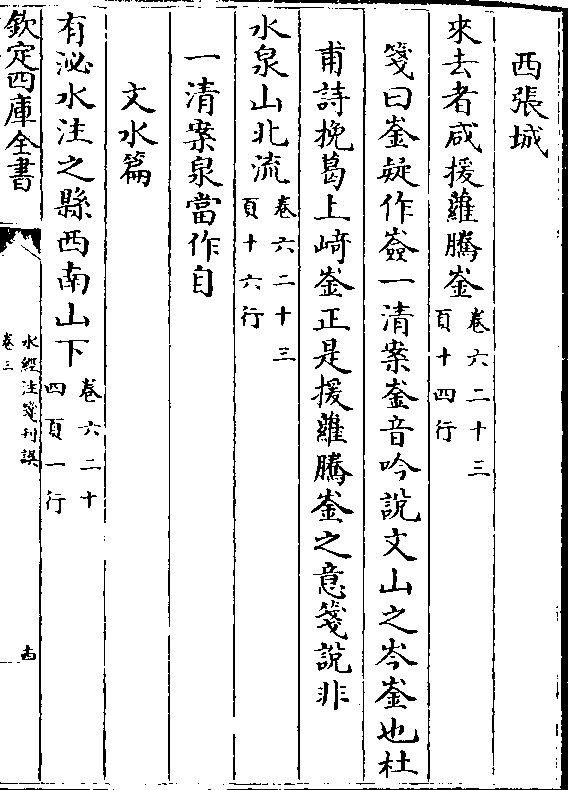 西張城
來去者咸援蘿騰崟卷六二十三頁十四行
箋曰崟疑作嶔一清案崟音吟說文山之岑崟也杜
甫詩挽葛上﨑崟正是援蘿騰崟之意箋說非
水泉山北流卷六二十三頁十六行
一清案泉當作自
文水篇
有泌水注之縣西南山下卷六二十四頁一行
欽定四庫全書
水經注箋刊誤
卷三
十四